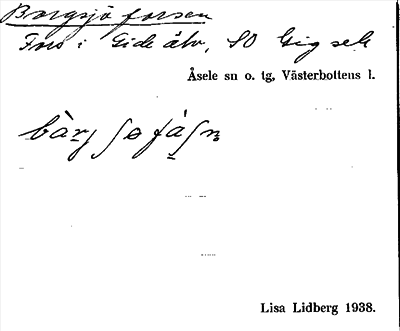 Borgsjöforsen
Fors i Gide älv, SO Gigsele
Åsele sn o. tg, Västerbottens l.
Lisa Lidberg 1938.